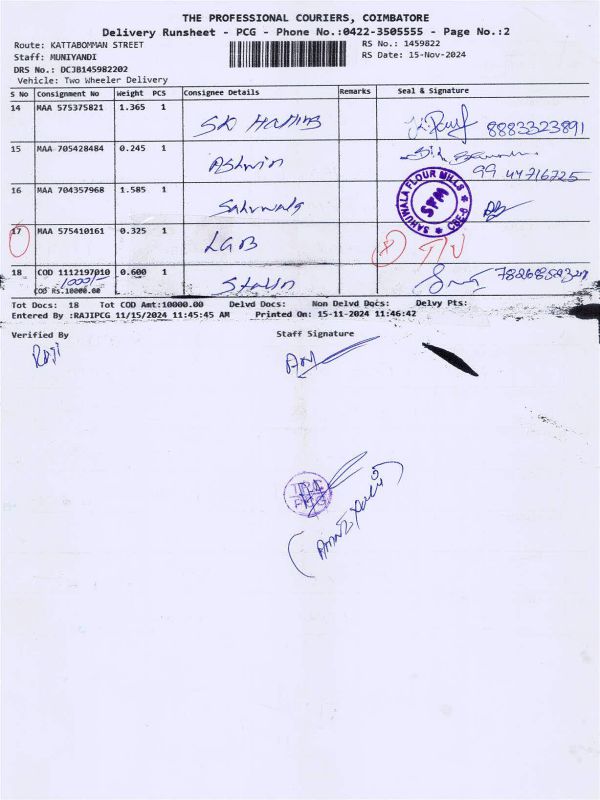 THE PROFESSIONAL COURIERS, COIMBATORE
Delivery Runsheet - PCG - Phone No.:0422-3505555 - Page No.:2
Route: KATTABOMMAN STREET RS No.: 1459822
Staff: MUNIYANDI RS Date: 15-Nov-2024
DRS No.: DCJB145982202
Vehicle: Two Wheeler Delivery
S No Consignment No Weight PCS Consignee Details Remarks Seal & Signature
14 MAA 575375821 1.365 1 8883323891
15 MAA 705428484 0.245 1 Ashwin 99 44716725
16 MAA 704357968 1.585 1 SAHUWALA FLOUR MILLS SFM CBE-6
17 MAA 575410161 0.325 1 LGB
18 COD 1112197010 0.600 1 Stalin
COD Rs.10000.00 1000/-
Tot Docs: 18 Tot COD Amt:10000.00 Delvd Docs: Non Delvd Docs: Delvy Pts:
Entered By :RAJIPCG 11/15/2024 11:45:45 AM Printed On: 15-11-2024 11:46:42
Verified By Staff Signature
Raji